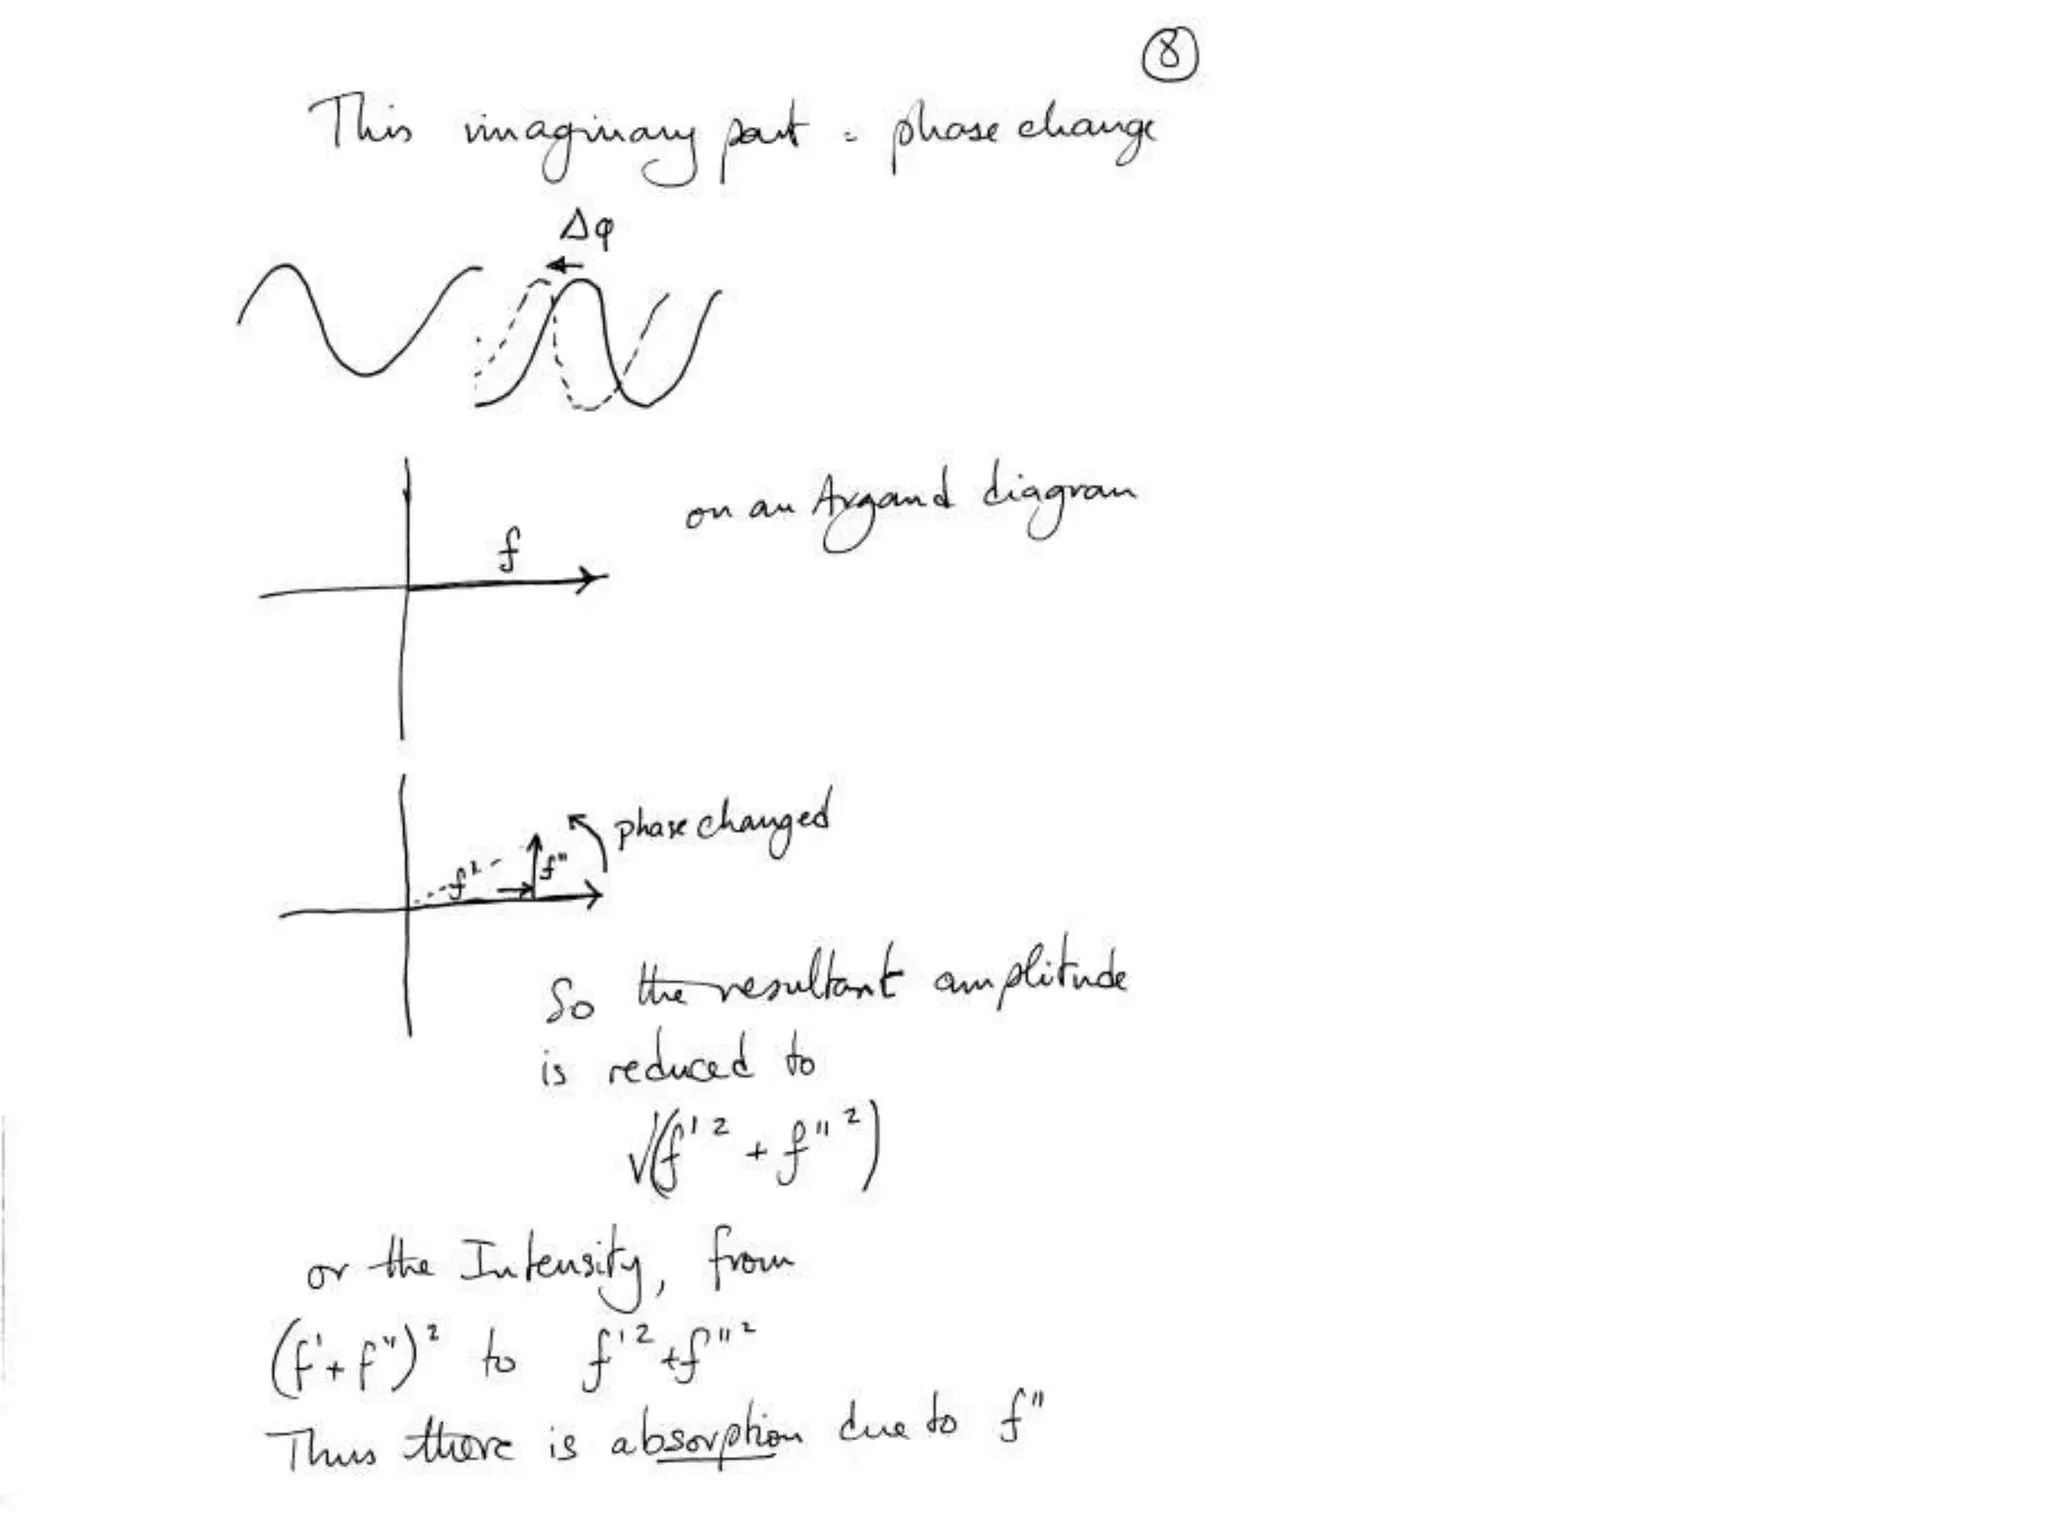 ⑧
This imaginary part = phase change
Δφ
on an Argand diagram
f
phase changed
f' f"
So the resultant amplitude
is reduced to
√(f'² + f"²)
or the Intensity, from
(f'+f")² to f'²+f"²
Thus there is absorption due to f"